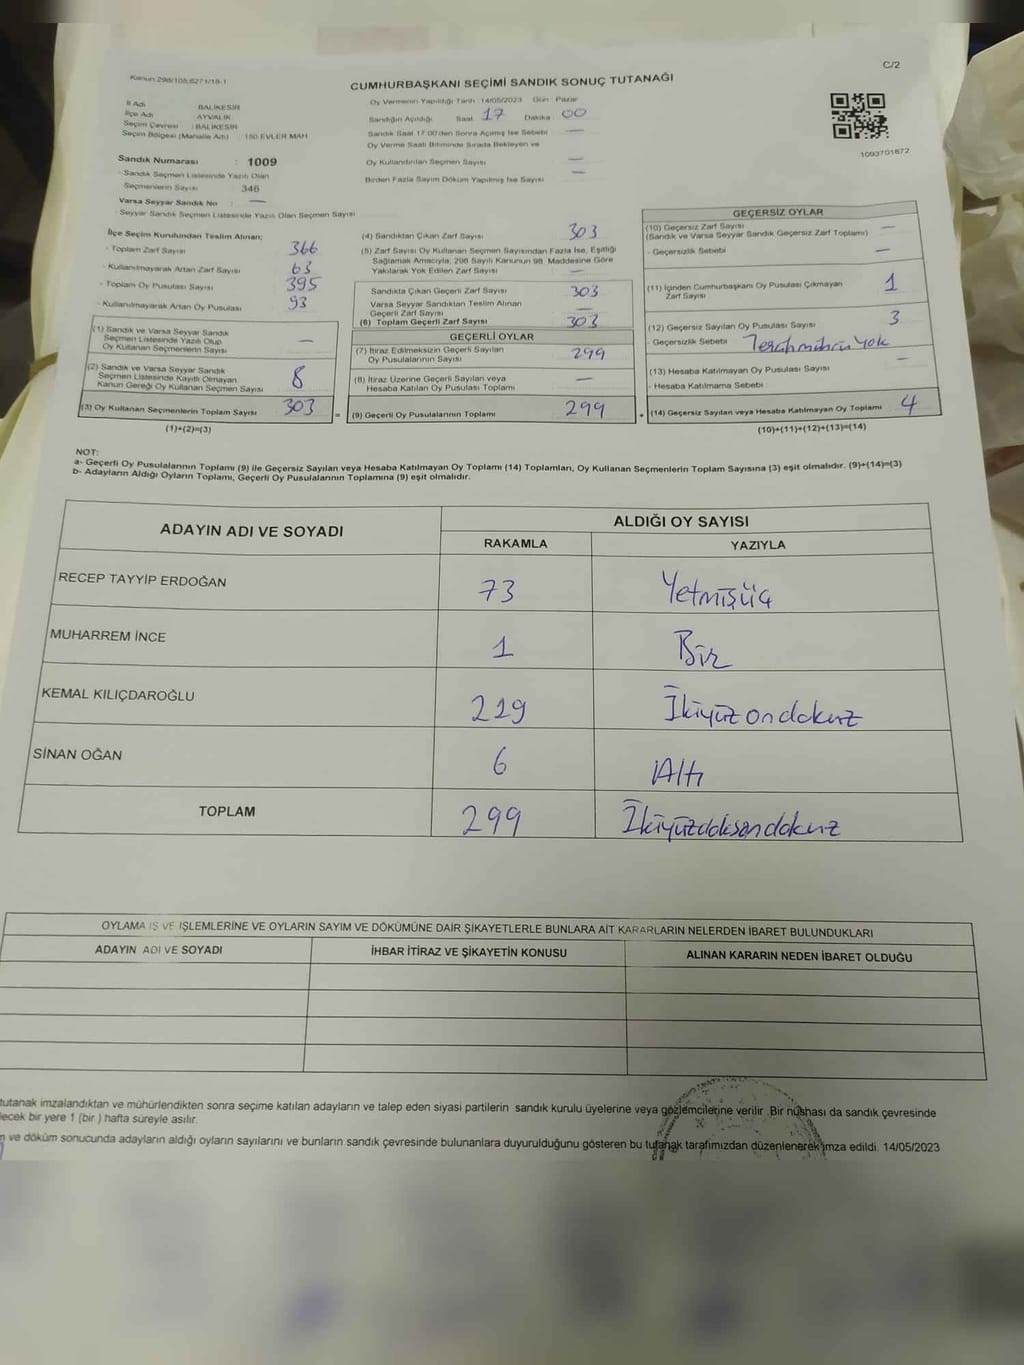 Kanun:298/105,6271/18-1
C/2
CUMHURBAŞKANI SEÇİMİ SANDIK SONUÇ TUTANAĞI
İl Adı BALIKESİR
İlçe Adı AYVALIK
Seçim Çevresi : BALIKESİR
Seçim Bölgesi (Mahalle Adı) 150 EVLER MAH
Sandık Numarası : 1009
- Sandık Seçmen Listesinde Yazılı Olan
Seçmenlerin Sayısı : 346
Varsa Seyyar Sandık No : —
- Seyyar Sandık Seçmen Listesinde Yazılı Olan Seçmen Sayısı
Oy Vermenin Yapıldığı Tarih 14/05/2023 Gün : Pazar
Sandığın Açıldığı Saat 17 Dakika 00
Sandık Saat 17:00'den Sonra Açılmış İse Sebebi —
Oy Verme Saati Bitiminde Sırada Bekleyen ve
Oy Kullandırılan Seçmen Sayısı —
Birden Fazla Sayım Döküm Yapılmış İse Sayısı —
1093701872
İlçe Seçim Kurulundan Teslim Alınan;
- Toplam Zarf Sayısı 366
- Kullanılmayarak Artan Zarf Sayısı 63
- Toplam Oy Pusulası Sayısı 395
- Kullanılmayarak Artan Oy Pusulası 93
(1) Sandık ve Varsa Seyyar Sandık
Seçmen Listesinde Yazılı Olup
Oy Kullanan Seçmenlerin Sayısı —
(2) Sandık ve Varsa Seyyar Sandık
Seçmen Listesinde Kayıtlı Olmayan
Kanun Gereği Oy Kullanan Seçmen Sayısı 8
(3) Oy Kullanan Seçmenlerin Toplam Sayısı 303 =
(1)+(2)=(3)
(4) Sandıktan Çıkan Zarf Sayısı 303
(5) Zarf Sayısı Oy Kullanan Seçmen Sayısından Fazla İse, Eşitliği
Sağlamak Amacıyla, 298 Sayılı Kanunun 98. Maddesine Göre
Yakılarak Yok Edilen Zarf Sayısı —
Sandıkta Çıkan Geçerli Zarf Sayısı 303
Varsa Seyyar Sandıktan Teslim Alınan
Geçerli Zarf Sayısı —
(6) Toplam Geçerli Zarf Sayısı 303
GEÇERLİ OYLAR
(7) İtiraz Edilmeksizin Geçerli Sayılan
Oy Pusulalarının Sayısı 299
(8) İtiraz Üzerine Geçerli Sayılan veya
Hesaba Katılan Oy Pusulası Toplamı —
(9) Geçerli Oy Pusulalarının Toplamı 299 +
GEÇERSİZ OYLAR
(10) Geçersiz Zarf Sayısı
(Sandık ve Varsa Seyyar Sandık Geçersiz Zarf Toplamı) —
- Geçersizlik Sebebi —
(11) İçinden Cumhurbaşkanı Oy Pusulası Çıkmayan
Zarf Sayısı 1
(12) Geçersiz Sayılan Oy Pusulası Sayısı 3
- Geçersizlik Sebebi Yok
(13) Hesaba Katılmayan Oy Pusulası Sayısı —
- Hesaba Katılmama Sebebi :
(14) Geçersiz Sayılan veya Hesaba Katılmayan Oy Toplamı 4
(10)+(11)+(12)+(13)=(14)
NOT:
a- Geçerli Oy Pusulalarının Toplamı (9) ile Geçersiz Sayılan veya Hesaba Katılmayan Oy Toplamı (14) Toplamları, Oy Kullanan Seçmenlerin Toplam Sayısına (3) eşit olmalıdır. (9)+(14)=(3)
b- Adayların Aldığı Oyların Toplamı, Geçerli Oy Pusulalarının Toplamına (9) eşit olmalıdır.
ADAYIN ADI VE SOYADI
ALDIĞI OY SAYISI
RAKAMLA YAZIYLA
RECEP TAYYİP ERDOĞAN 73 Yetmişüç
MUHARREM İNCE 1 Bir
KEMAL KILIÇDAROĞLU 219 İkiyüz ondokuz
SİNAN OĞAN 6 Altı
TOPLAM 299 İkiyüzdoksandokuz
OYLAMA İŞ VE İŞLEMLERİNE VE OYLARIN SAYIM VE DÖKÜMÜNE DAİR ŞİKAYETLERLE BUNLARA AİT KARARLARIN NELERDEN İBARET BULUNDUKLARI
ADAYIN ADI VE SOYADI İHBAR İTİRAZ VE ŞİKAYETİN KONUSU ALINAN KARARIN NEDEN İBARET OLDUĞU
tutanak imzalandıktan ve mühürlendikten sonra seçime katılan adayların ve talep eden siyasi partilerin sandık kurulu üyelerine veya gözlemcilerine verilir. Bir nüshası da sandık çevresinde
ecek bir yere 1 (bir ) hafta süreyle asılır.
ve döküm sonucunda adayların aldığı oyların sayılarını ve bunların sandık çevresinde bulunanlara duyurulduğunu gösteren bu tutanak tarafımızdan düzenlenerek imza edildi. 14/05/2023